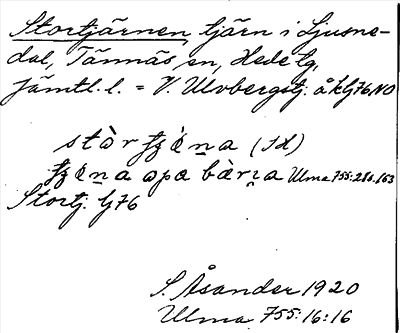 Stortjärnen tjärn i Ljusne-
dal, Tännäs sn, Hede tg,
Jämtl. l. = V. Ulvbergstj. åk G76NO
(Id)
Ulma 755:28a.163
Stortj. G76
S. Åsander 1920
Ulma 755:16:16